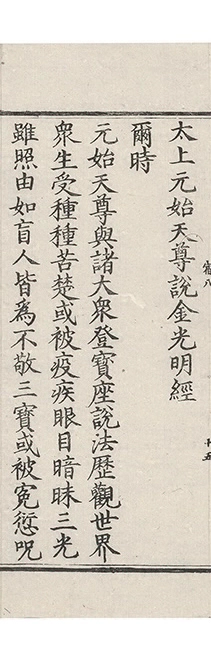 太上元始天尊說金光明經
爾時
元始天尊與諸大衆登寶座說法歷觀世界
衆生受種種苦楚或被疫疾眼目暗昧三光
雖照由如盲人皆爲不敬三寶或被寃愆呪